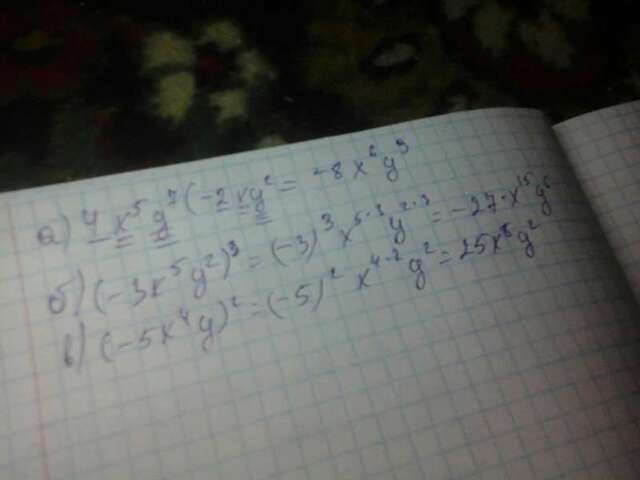 а) 4x⁵y⁷(-2xy² = -8x⁶y⁹
б) (-3x⁵y²)³ = (-3)³ x⁵·³y²·³ = -27·x¹⁵y⁶
в) (-5x⁴y)² = (-5)² x⁴·²y² = 25x⁸y²